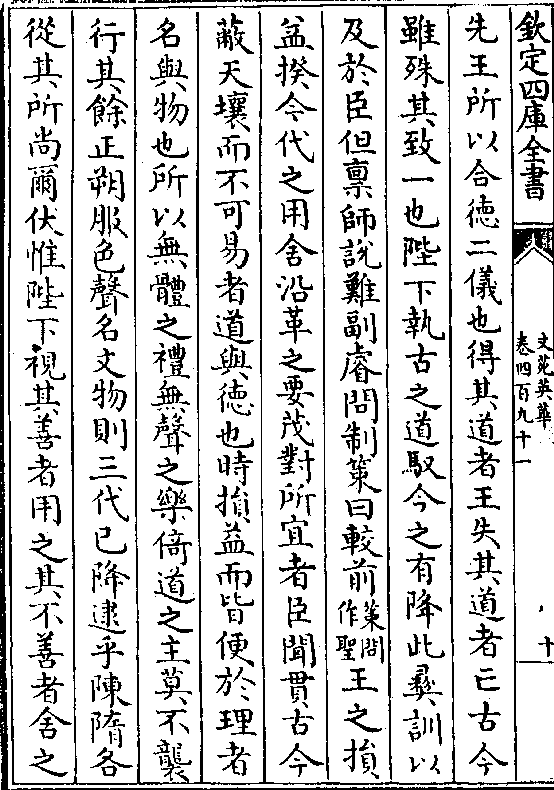 欽定四庫全書
文苑英華
卷四百九十一
十
先王所以合德二儀也得其道者王失其道者亡古今
雖殊其致一也陛下執古之道馭今之有降此彝訓以
及於臣但稟師說難副睿問制策曰較前策問作聖王之損
益揆今代之用舍沿革之要茂對所宜者臣聞貫古今
蔽天壤而不可易者道與德也時損益而皆便於理者
名與物也所以無體之禮無聲之樂倚道之主莫不襲
行其餘正朔服色聲名文物則三代已降逮乎陳隋各
從其所尚爾伏惟陛下視其善者用之其不善者舍之